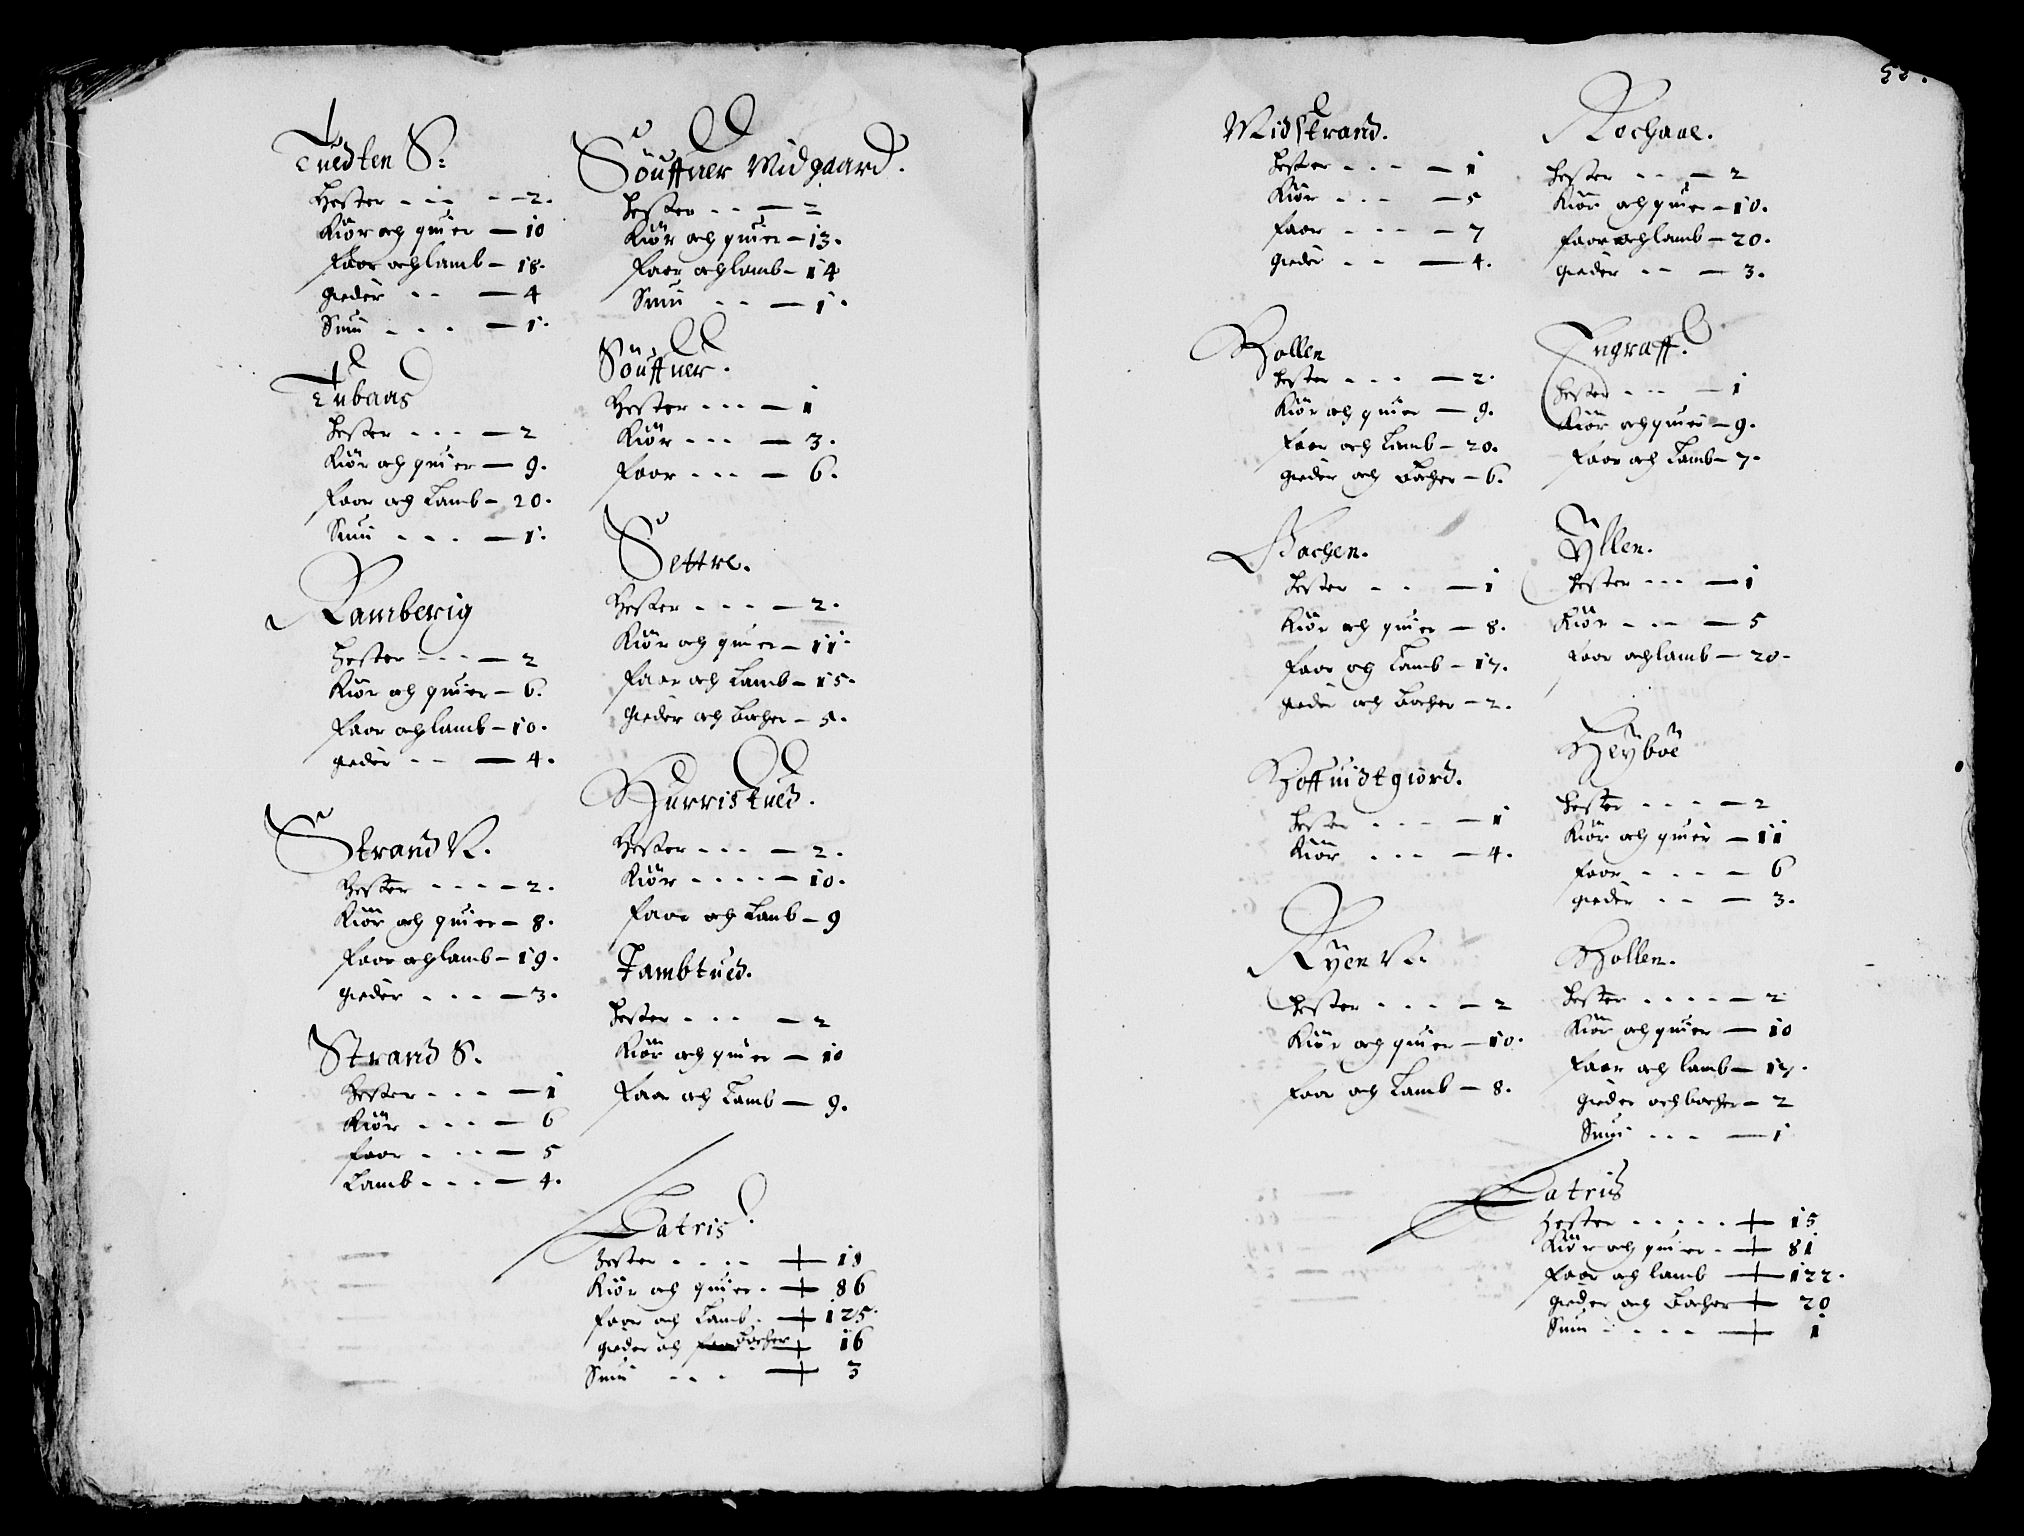 Tuedten S:
Hester - - - - 2.
Kiör och quier - 10
faar och lamb - 18.
gieder - - - 4
Suin - - - - 1.
Tubaas
hester - - - - 2
Kiör och quier - 9.
faar och Lamb - 20.
Suin - - - - 1.
Ramberig
hester - - - - 2
Kiör och quier - 6.
faar och lamb - 10.
gieder - - - 4.
Strand N.
Hester - - - - 2.
Kiör och quier - 8.
faar och lamb - 19.
gieder - - - - 3.
Strand S.
Hester - - - - 1
Kiör - - - - 6
faar - - - - 5
Lamb - - - - 4.
Söuffner Midgaard.
hester - - - 2
Kiör och quier - 13.
faar och lamb - 14
Suin - - - 1.
Söuffner.
Hester - - - - 1
Kiör - - - - 3.
faar - - - - 6.
Settre.
Hester - - - - 2.
Kiör och quier - 11.
faar och Lamb - 15.
gieder och bocher - 5.
Hurristued.
Hester - - - - 2.
Kiör - - - - - 10.
faar och Lamb - 9
Tambtued.
hester - - - - 2
Kiör och quier - 10
faar och Lamb - 9.
Latris.
hester - - - - + 19
Kiör och quier - + 86
faar och Lamb - + 125.
gieder och faar bocher + 16
Suin - - - + 3
52.
Midstrand.
hester - - - - 1
Kiör - - - - 5
faar - - - - 7
gieder - - - 4.
Hollen
hester - - - - 2.
Kiör och quier - 9.
faar och Lamb - 20.
gieder och bocher - 6.
Bachen.
hester - - - 1
Kiör och quier - 8.
faar og Lamb - 17.
gieder och bocher - 2.
Hoffuidtgiord.
hester - - - - 1
Kiör - - - - 4.
Ryen N.
hester - - - - - 2
Kiör och quier - 10.
faar och Lamb - 8.
Rochaae.
hester - - - 2
Kiör och quier - 10.
faar och lamb - 20.
gieder - - - 3.
Engraff.
hester - - - - 1
Kiör och quier - 9.
faar och Lamb - 7.
Yllen.
hester - - - - 1
Kiör - - - - 5
faar och lamb - 20.
Heyböe
hester - - - - - 2
Kiör och quier - 11
faar - - - - - 6
gieder - - - 3.
Hollen.
hester - - - - - 2
Kiör och quier - 10
faar och lamb - 17.
gieder och bocher - 2
Suin - - - - 1
Latris
hester - - - - - + 15
Kiör och quier - + 81
faar och lamb + 122.
gieder och bocher + 20
Suin - - - - + 1